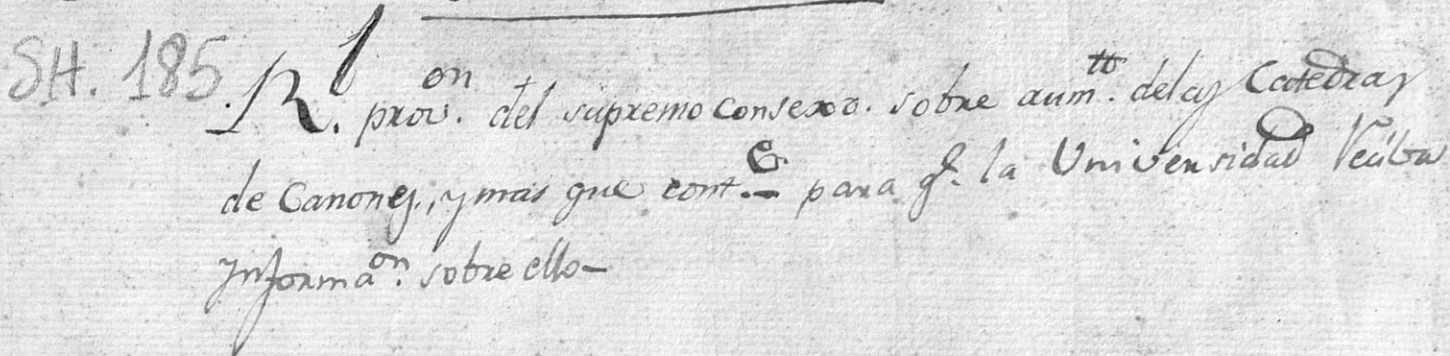 SH. 185. R.l prov.on del supremo Consexo. sobre aum.tto delas Catedras
de Canones., y mas que cont.e para q.e la Universidad Reciba
Ynforma.on sobre ello-